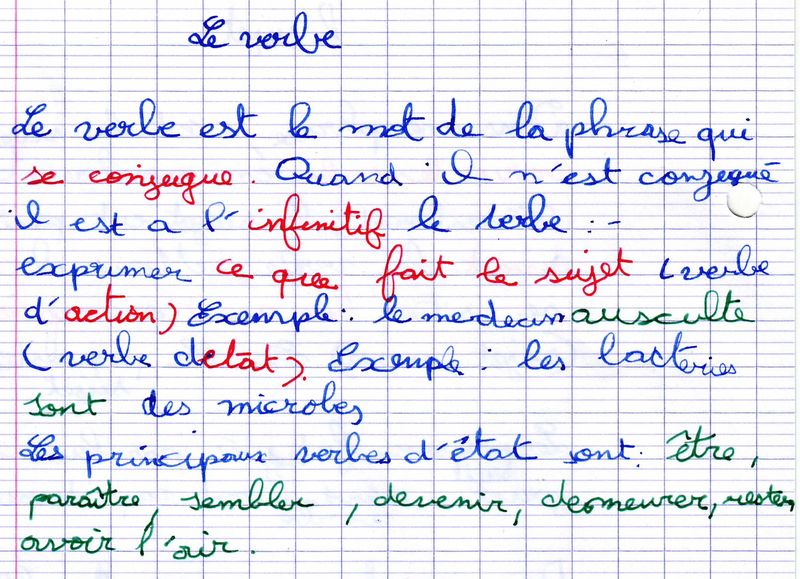 Le verbe
Le verbe est le mot de la phrase qui
se conjugue. Quand il n'est conjugué
il est a l'infinitif le verbe : -
exprimer ce que fait le sujet (verbe
d'action) Exemple : le medecin ausculte
(verbe détat). Exemple : les bacteries
sont des microbes
Les principaux verbes d'état sont : être,
paraître, sembler, devenir, demeurer, rester,
avoir l'air.